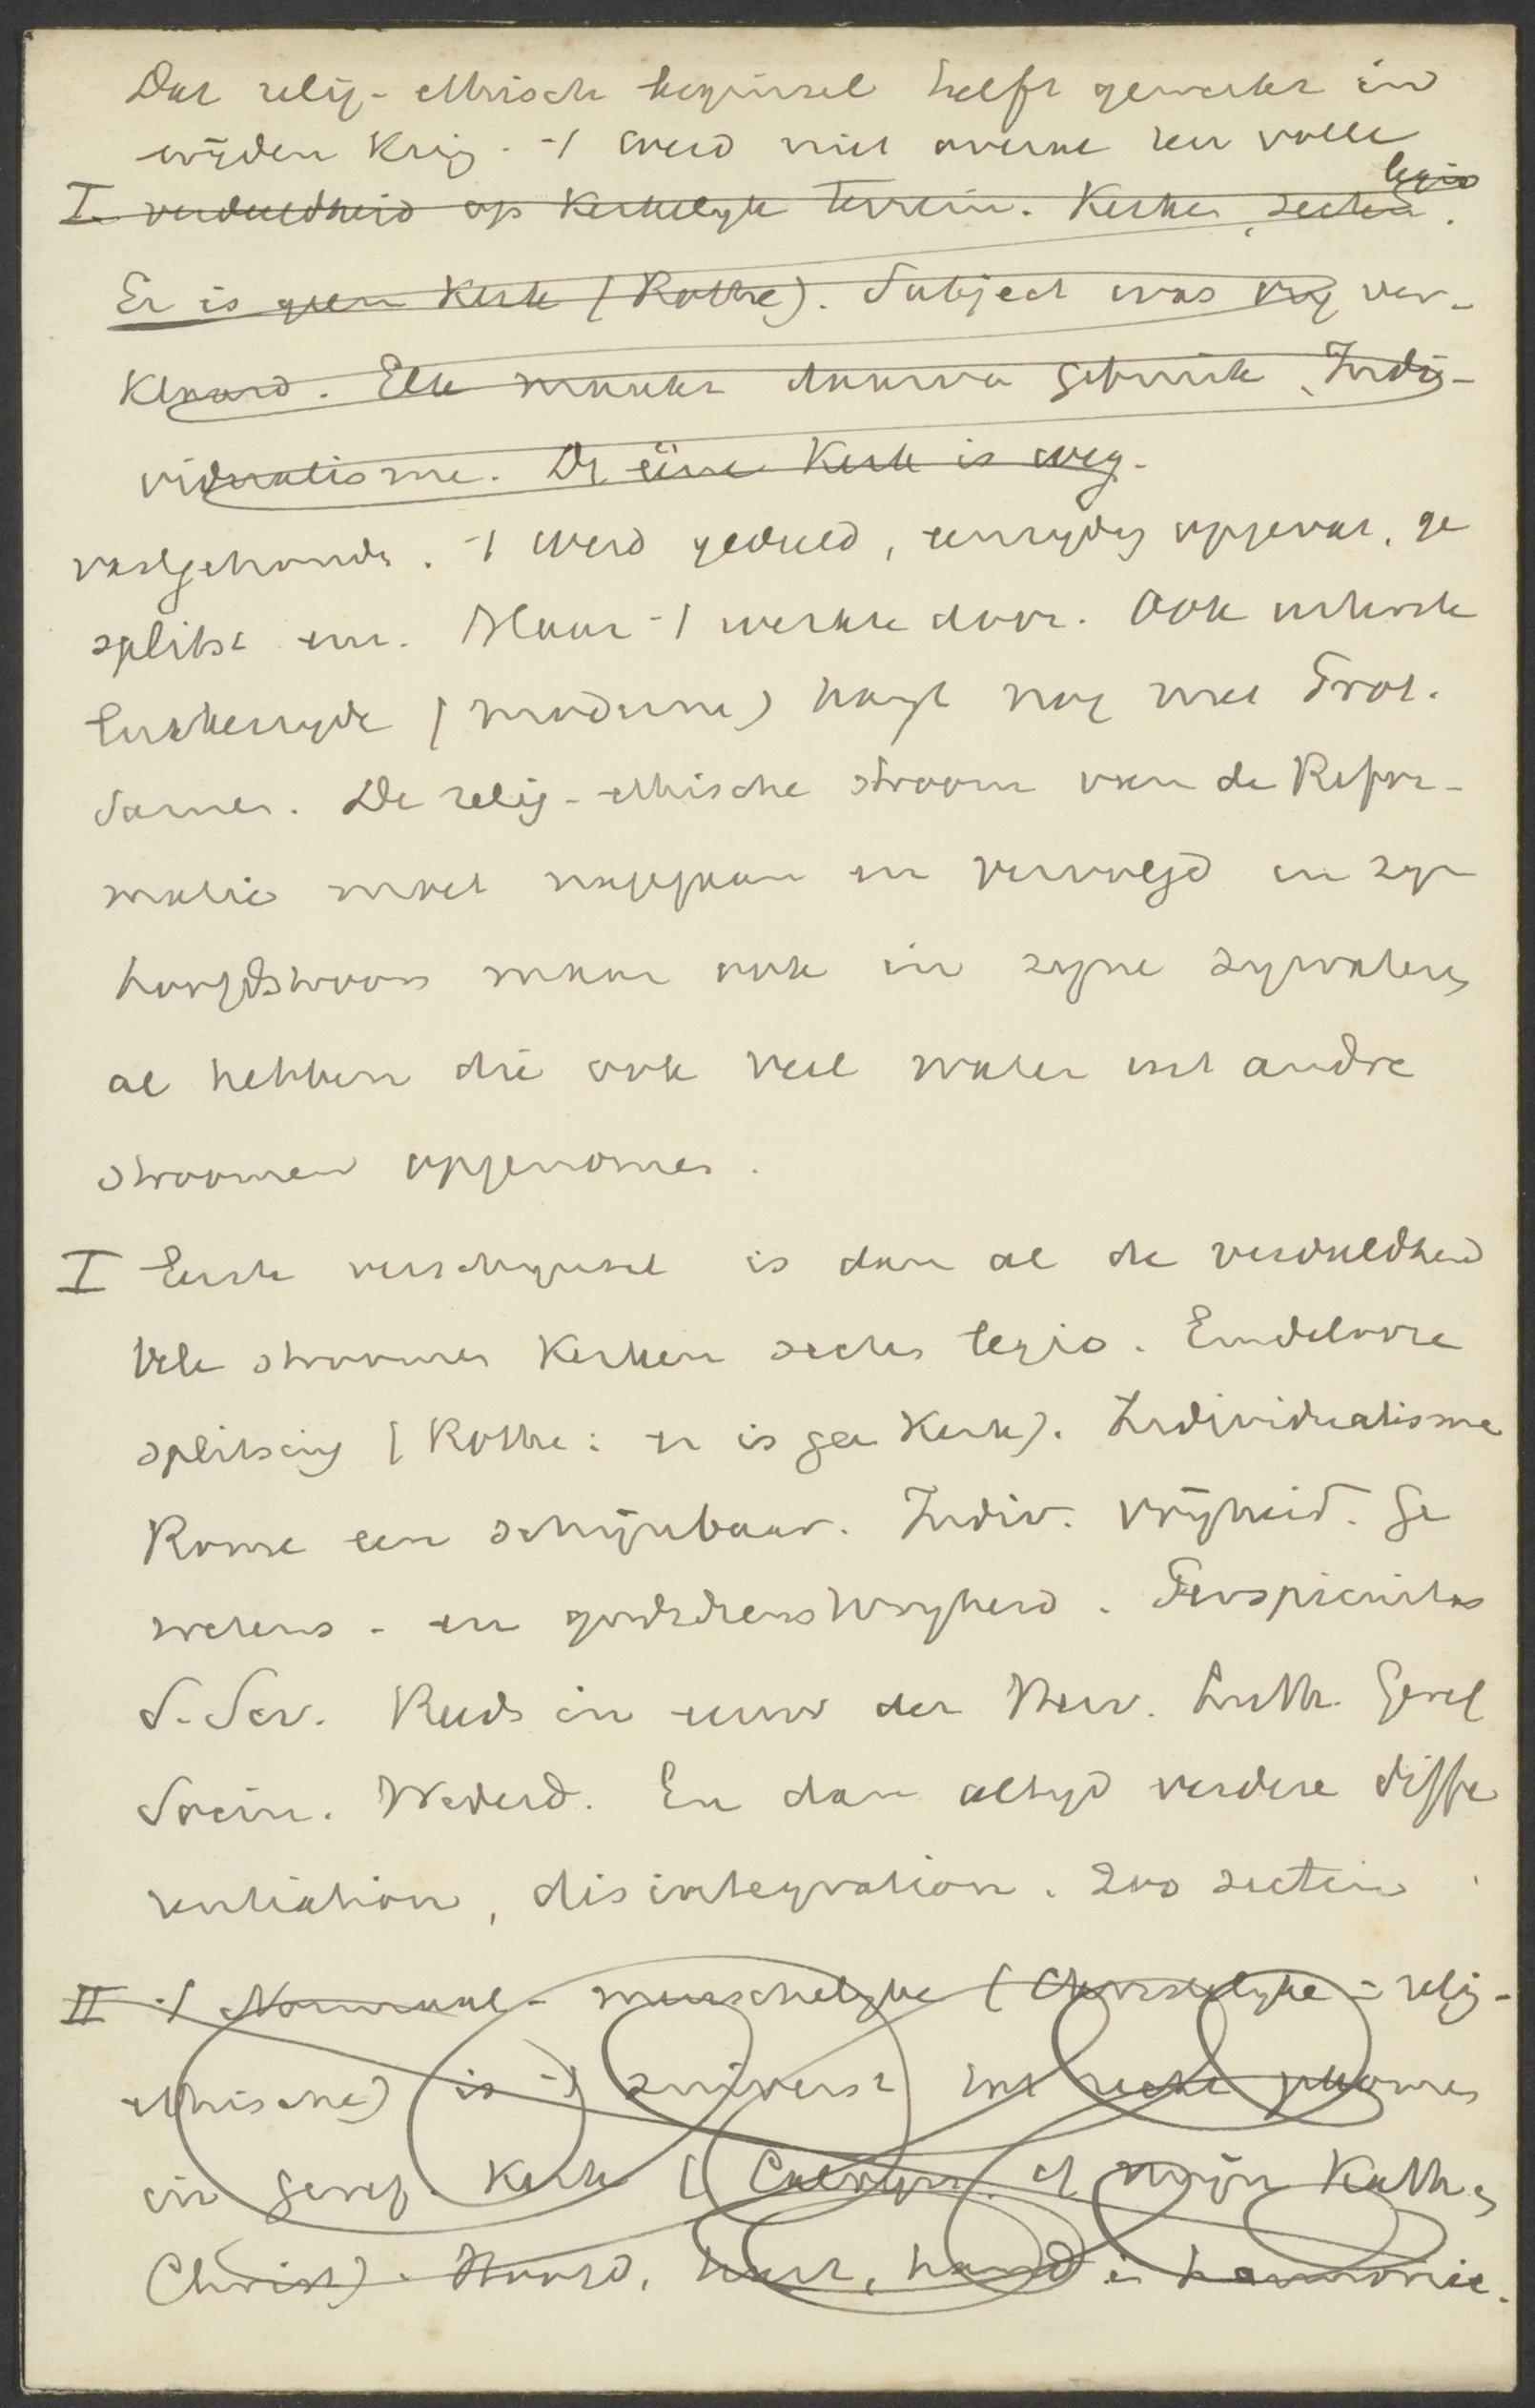 Dat relig-ethisch beginsel heeft gewerkt in
wijden kring. -t werd niet overal ten volle
legio
I verdeeldheid op kerkelyk terrein. Kerken, secten.
Er is geen Kerk (Rothe). Subject was vrij ver-
klaard. Elk maakte daarva gebruik, Indi-
vidualisme. De ééne Kerk is weg.
vastgehouden. -t werd gedeeld, eenzydig opgevat, ge
splitst enz. Maar -t werkte door. Ook uiterste
linkerzyde (moderne) hangt nog met Prot.
samen. De relig-ethische stroom van de Refor-
matie moet nagegaan en vervolgd in zyn
hoofdstroom maar ook in zyne zywateren,
al hebben die ook veel water uit andre
stroomen opgenomen.
I Eerste verschynsel is dan al de verdeeldheid
Vele stroomen Kerken secten legio. Eindelooze
splitsing (Rothe: er is gee Kerk). Individualisme
Rome een schijnbaar. Indiv. vrijheid. Ge
wetens- en godsdienstvryheid. Perspicuitas
S. Scr. Reeds in eeuw der Herv. Luth. Geref
Socin. Wederd. En dan altyd verdere diffe
rentiation, disintegration. 200 secten
II -t Normaal-menschelyke (Christelyke = relig-
ethische) is -t zuiverst tot recht gekomen
in Geref. Kerk (Calvyn. of mijn Kath.
Christ). Hoofd, hart, hand in harmonie.